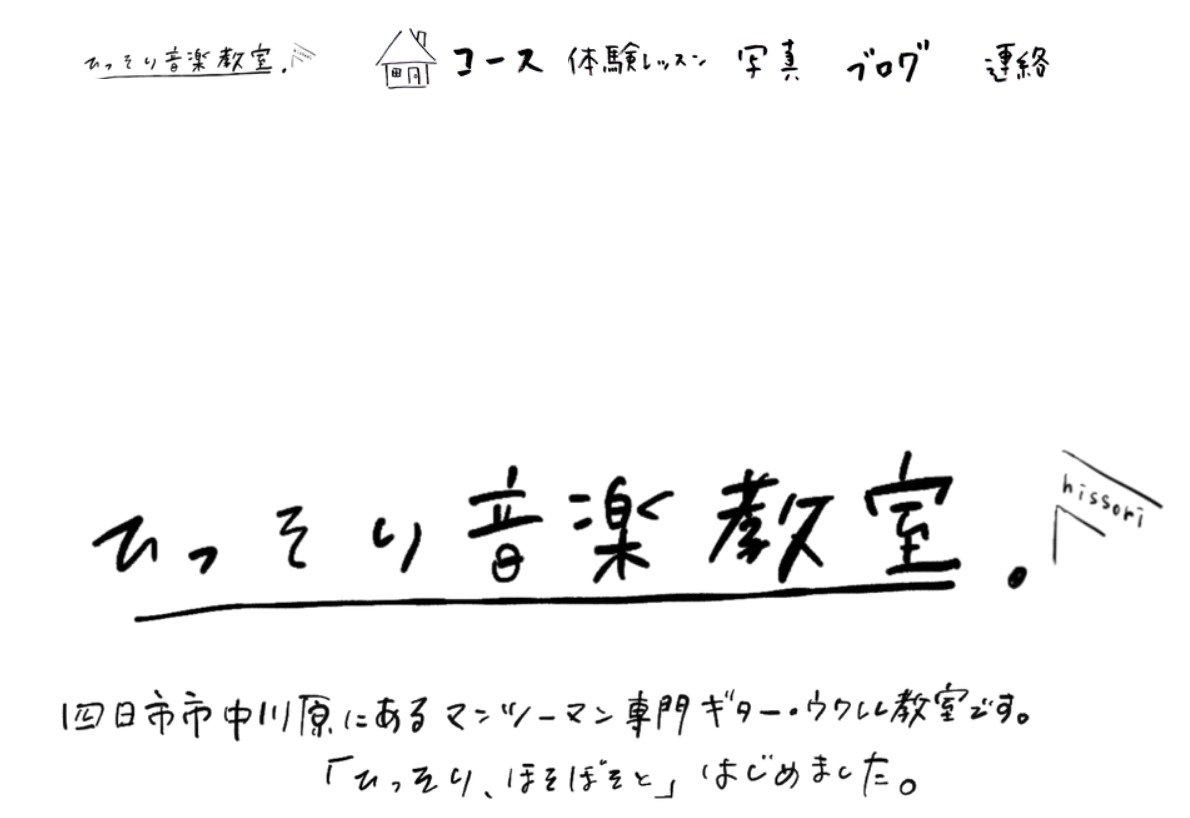 ひっそり音楽教室.
コース 体験レッスン 写真 ブログ 連絡
ひっそり音楽教室.
hissori
四日市市中川原にあるマンツーマン専門ギター・ウクレレ教室です。
「ひっそり、ほそぼそと」はじめました。